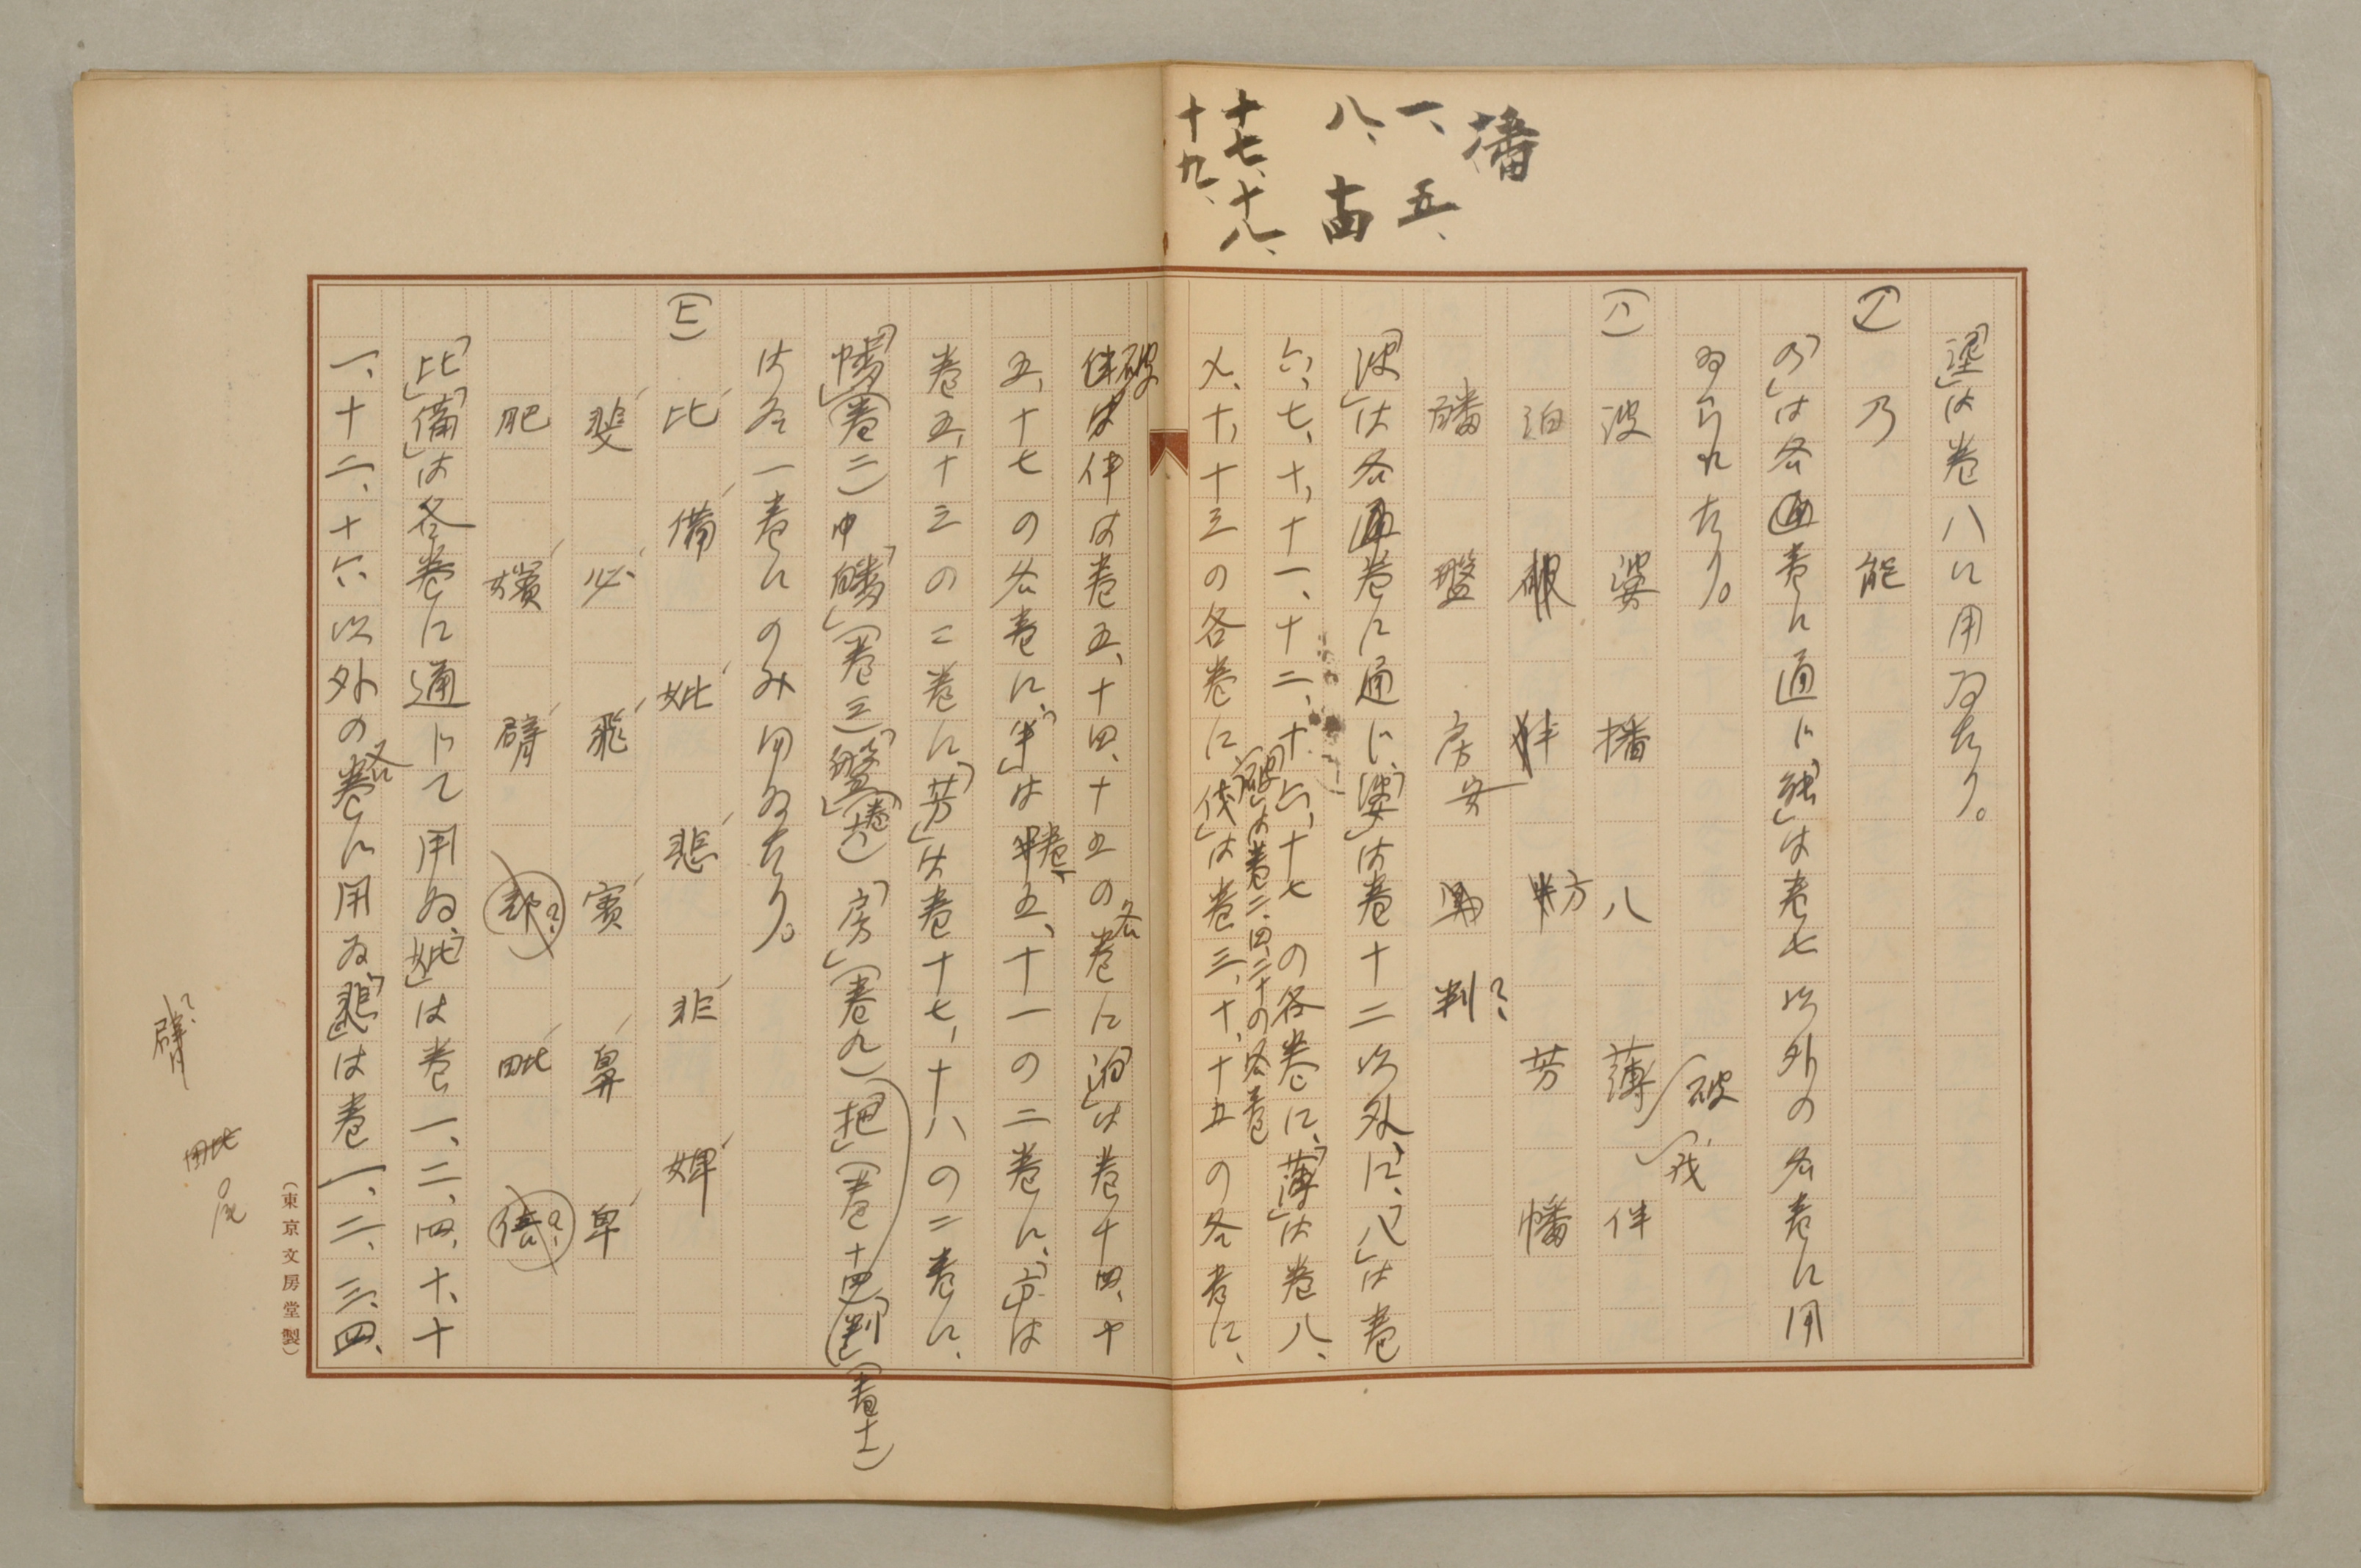 播
一、五、
八、十四
十七、十八、
十九、
は巻八に用ゐたり。
(ノ) 乃 能
「乃」は各巻に通じ「能」は巻七以外の各巻に用
ゐられたり。
(ハ) 波 婆 播 八 薄 伴
破 伐
泊 方 芳 幡
皤 盤 房 判?
「波」は各巻に通じ、「婆」は巻十二以外に、「八」は巻
六、七、十、十一、十二、十六、十七の各巻に、「薄」は巻八、
「破」は巻二、四、二十の各巻
十、十三の各巻に「伐」は巻三、十、十五の各巻に、
伴は巻五、十四、十五の各巻に「泊」は巻十四、十
五、十七の各巻に、「半」は巻五、十一の二巻に、「方」は
巻五、十三の二巻に、「芳」は巻十七、十八の二巻に、
「幡」(巻二)「皤」(巻三)「盤」(巻十六)「房」(巻九)「把」(巻十四)「判」(巻十一)
は各一巻にのみ用ゐたり。
(ヒ) 比 備 妣 悲 非 婢
斐 必 飛 賓 鼻 卑
肥 嬪 臂 毗 倍?
「比」「備」は各巻に通じて用ゐ、「妣」は巻一、二、四、十、十
一、十二、十六以外の各巻に用ゐ、「悲」は巻一、二、三、四、
臂?
毗
尾
(東京文房堂製)